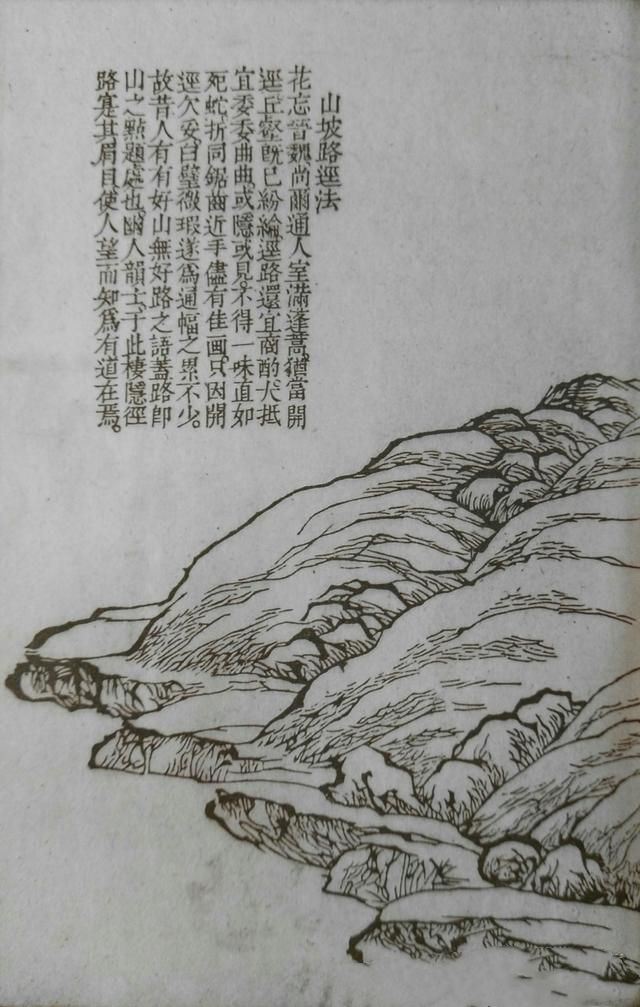 山坡路逕法
花忘晉魏尚爾通人室滿蓬蒿猶當開
逕丘壑旣已紛綸逕路還宜商酌大抵
宜委委曲曲或隱或見不得一味直如
死蛇折同鋸齒近手儘有佳画只因開
逕欠妥白璧微瑕遂爲通幅之累不少。
故昔人有有好山無好路之語蓋路卽
山之點題處也幽人韻士于此棲隱徑
路寔其眉目使人望而知爲有道在焉。